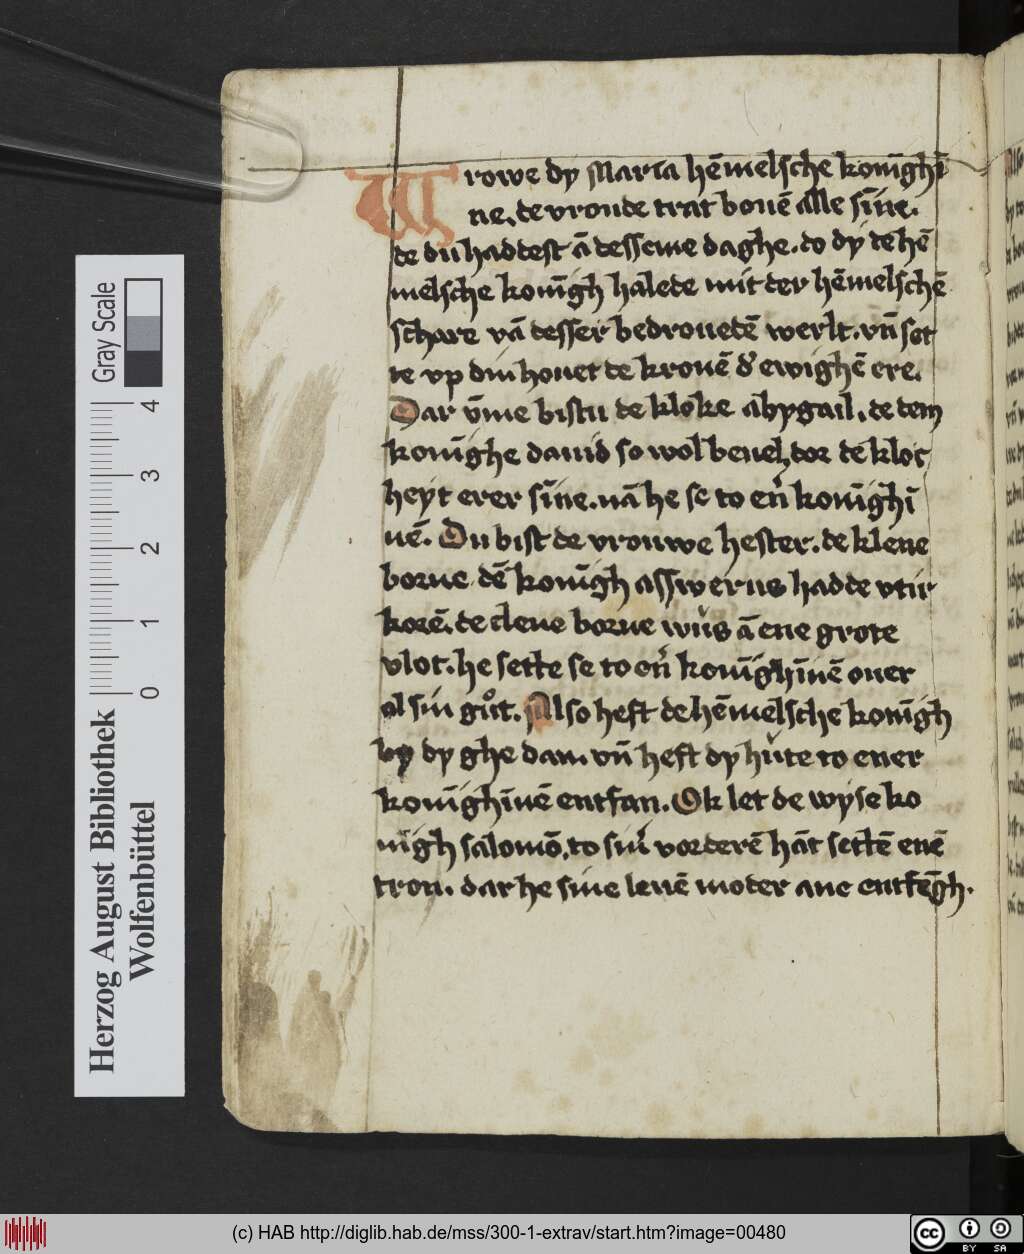 Vrowe dy Maria hēmelsche konīghī
ne. de vroude trat bouē alle sīne.
de du haddest ā desseme daghe. do dy dē hē
melsche konīgh halede mit der hēmelschē
schare vā desser bedrouedē werlt. vn̄ set
te vp din houet de kronē d' ewighē ere.
Dar v̄me bistu de kloke abygail. de dem
konīghe dauid so wol beuel. dor de kloc
heyt erer sīne. nā he se to en̄ konīghī
nē. Du bist de vrouwe hester. de klene
borne dē konīgh asswerus hadde vtir
korē. de clene borne wn̄s ā ene grote
vlot. he sette se to en̄ konīghīnē ouer
al sin gůt. Also heft de hēmelsche konīgh
by dy ghe dan. vn̄ heft dy hůte to ener
konīghīnē entfan. Ok let de wyse ko
nīgh salomō. to sin' vorderē hāt settē enē
tron. dar he sine leuē moder ane entfēgh.
Gray Scale
0 1 2 3 4
Herzog August Bibliothek
Wolfenbüttel
(c) HAB http://diglib.hab.de/mss/300-1-extrav/start.htm?image=00480
cc BY SA